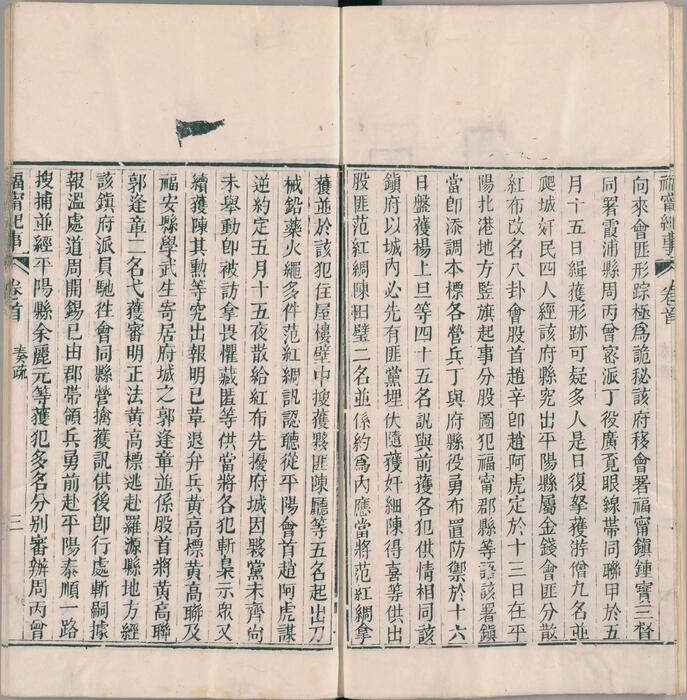 福甯紀事 卷首
向來會匪形踪極爲詭秘該府移會署福甯鎮鍾寶三督
同署霞浦縣周丙曾密派丁役廣覓眼線帶同聯甲於五
月十五日緝獲形跡可疑多人是日復拏獲游僧九名並
爬城奸民四人經該府縣究出平陽縣屬金錢會匪分散
紅布改名八卦會股首趙辛卽趙阿虎定於十三日在平
陽北港地方監旗起事分股圖犯福甯郡縣等語該署鎮
當卽添調本標各營兵丁與府縣役勇布置防禦於十六
日盤獲楊上旦等四十五名訊與前獲各犯供情相同該
鎮府以城內必先有匪黨埋伏隨獲奸細陳得喜等供出
股匪范紅綢陳田璧二名並係約爲內應當將范紅綢拿
獲並於該犯住屋樓壁中搜獲夥匪陳廳等五名起出刀
械鉛藥火繩多件范紅綢訊認聽從平陽會首趙阿虎謀
逆約定五月十五夜散給紅布先擾府城因夥黨未齊尙
未舉動卽被訪拿畏懼藏匿等供當將各犯斬梟示眾又
續獲陳其勳等究出報明已草退弁兵黃高標黃高聯及
福安縣學武生寄居府城之郭逢章並係股首將黃高聯
郭逢章二名弋獲審明正法黃高標逃赴羅源縣地方經
該鎮府派員馳往會同縣營擒獲訊供後卽行處斬嗣據
報溫處道周開錫已由郡帶領兵勇前赴平陽泰順一路
搜捕並經平陽縣余麗元等獲犯多名分別審辦周丙曾
福甯紀事 卷首 奏疏 三